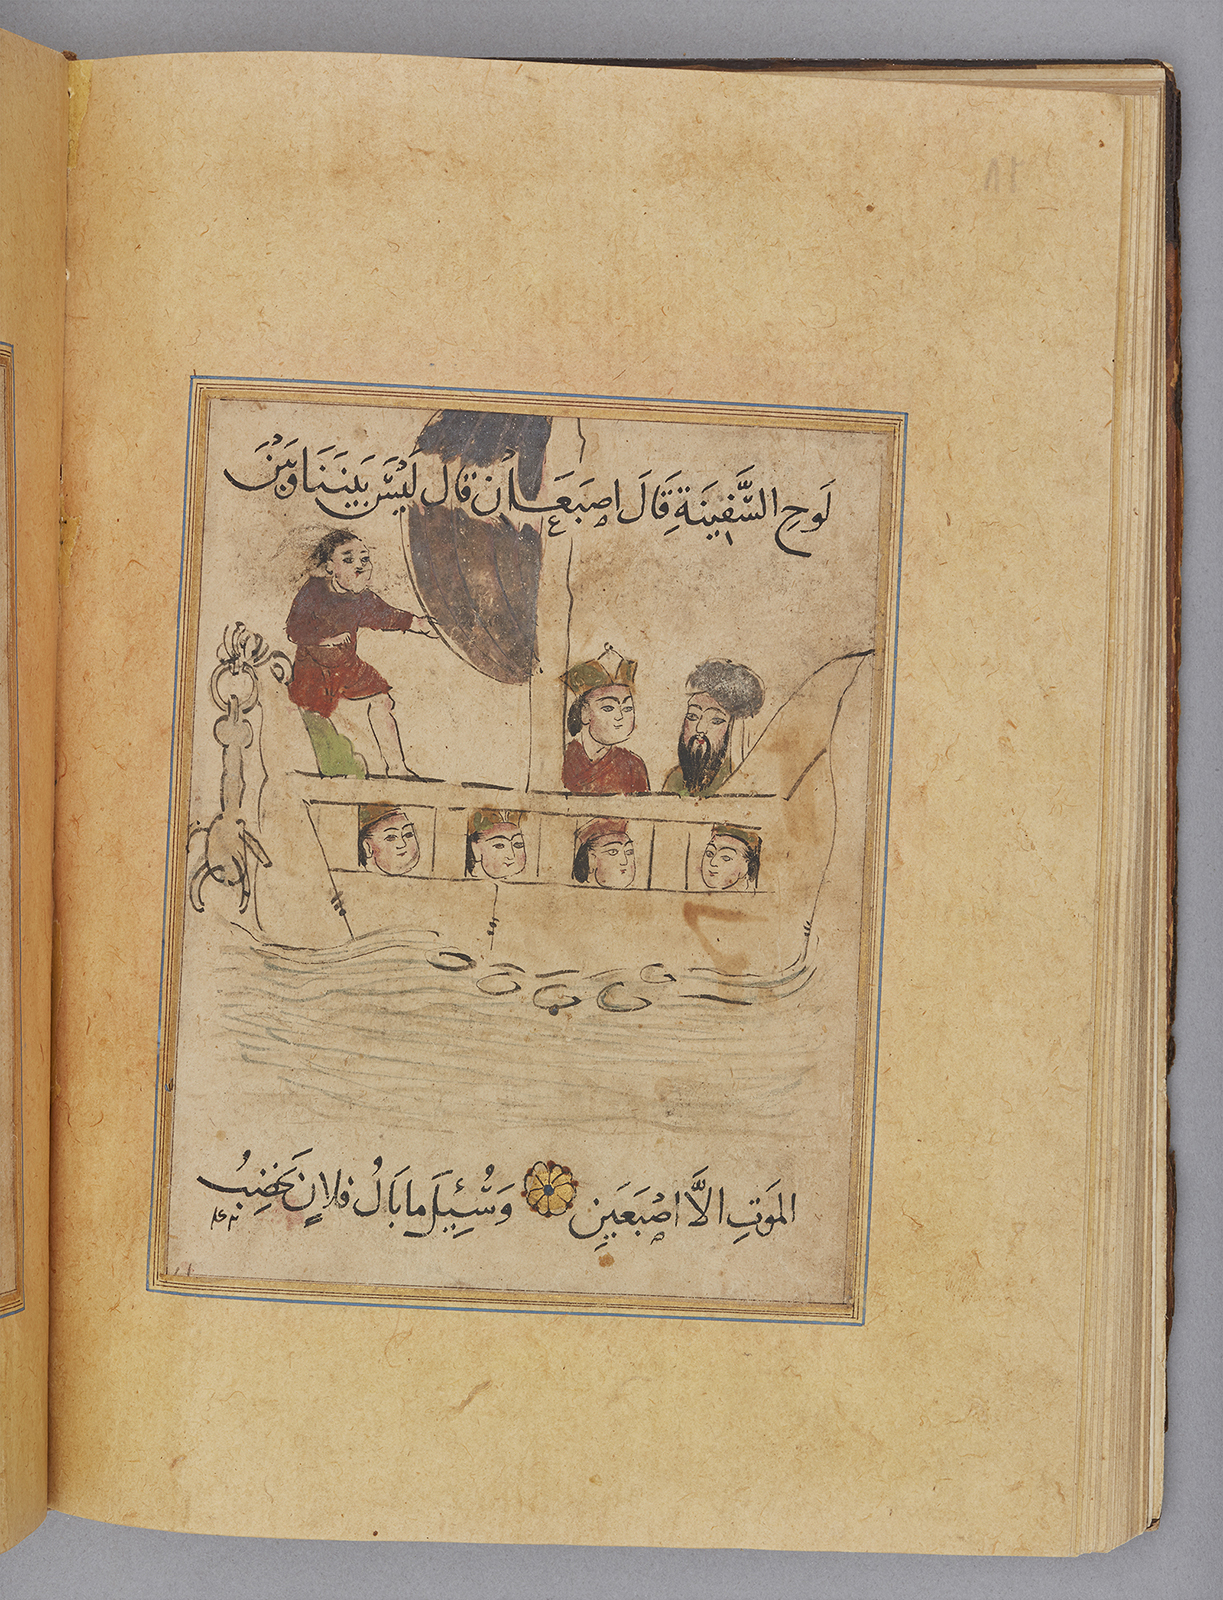 لَوحِ السَّفِينَةِ قَالَ اِصبَعَانِ قَالَ لَيْسَ بَيْنَنَا وَبَيْنَ
المَوتِ الَّا اِصْبَعَينِ وَسُئِلَ مَا بَالُ فلانٍ يَخضِبُ